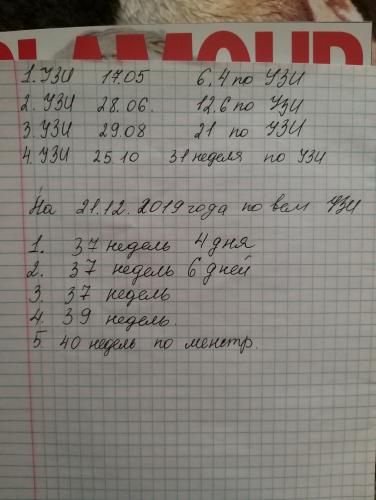 GLAMOUR
1. УЗИ 17.05 6,4 по УЗИ
2. УЗИ 28.06. 12,6 по УЗИ
3. УЗИ 29.08 21 по УЗИ
4. УЗИ 25.10 31 неделя по УЗИ
На 21.12.2019 года по всем УЗИ
1. 37 недель 4 дня
2. 37 недель 6 дней
3. 37 недель
4. 39 недель.
5. 40 недель по менстр.